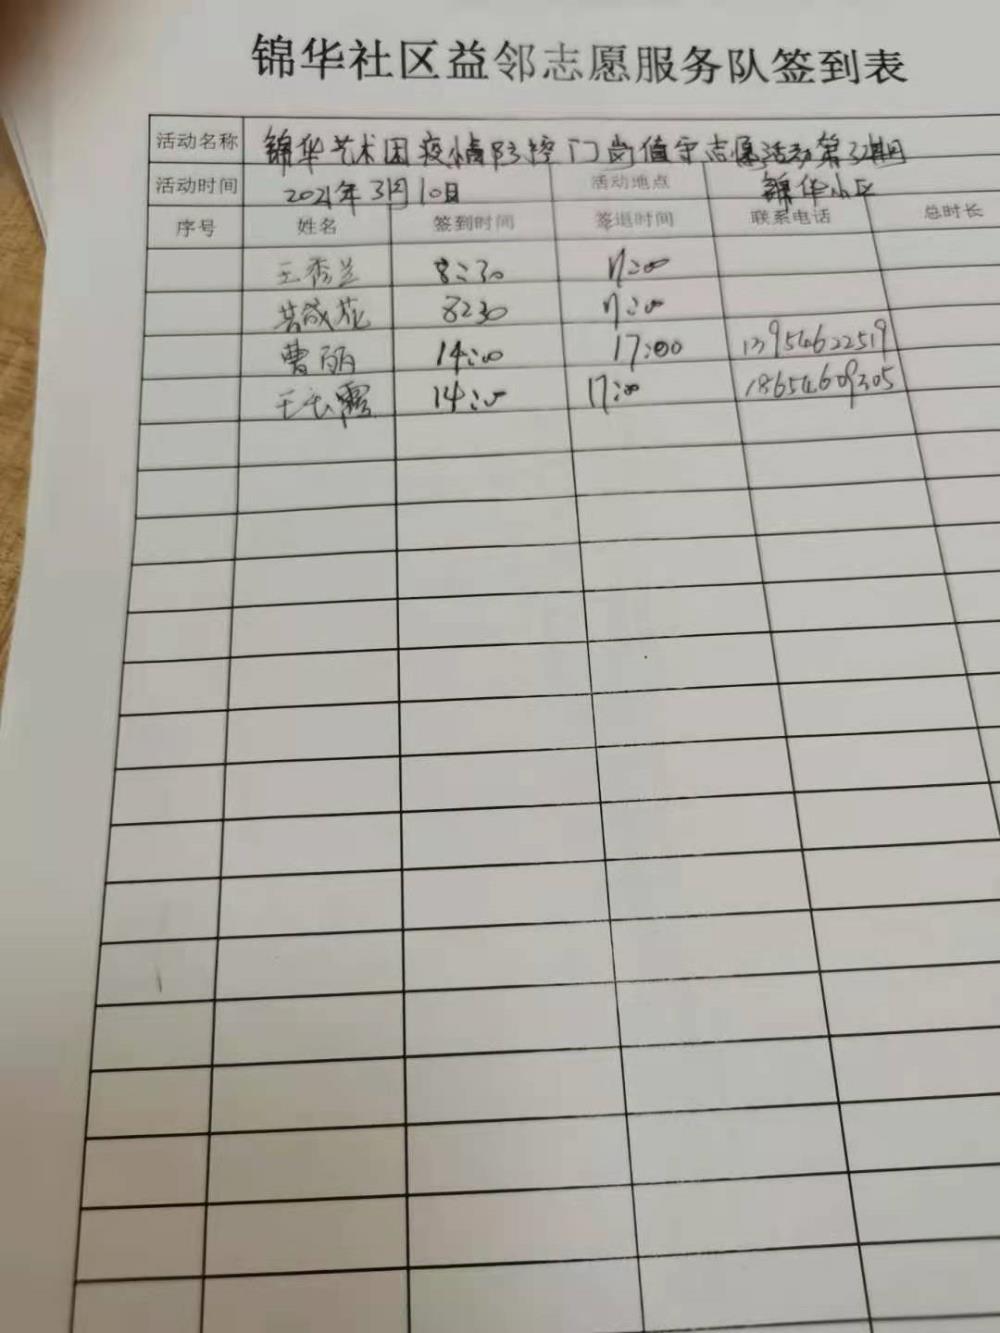 锦华社区益邻志愿服务队签到表
活动名称 锦华艺术团疫情防控门岗值守志愿活动第32期
活动时间 2021年3月10日 活动地点 锦华小区
序号 姓名 签到时间 签退时间 联系电话 总时长
王秀兰 8:30 11:00
8:30 11:00
曹丽 14:00 17:00 13954622519
14:00 17:00 18654609305